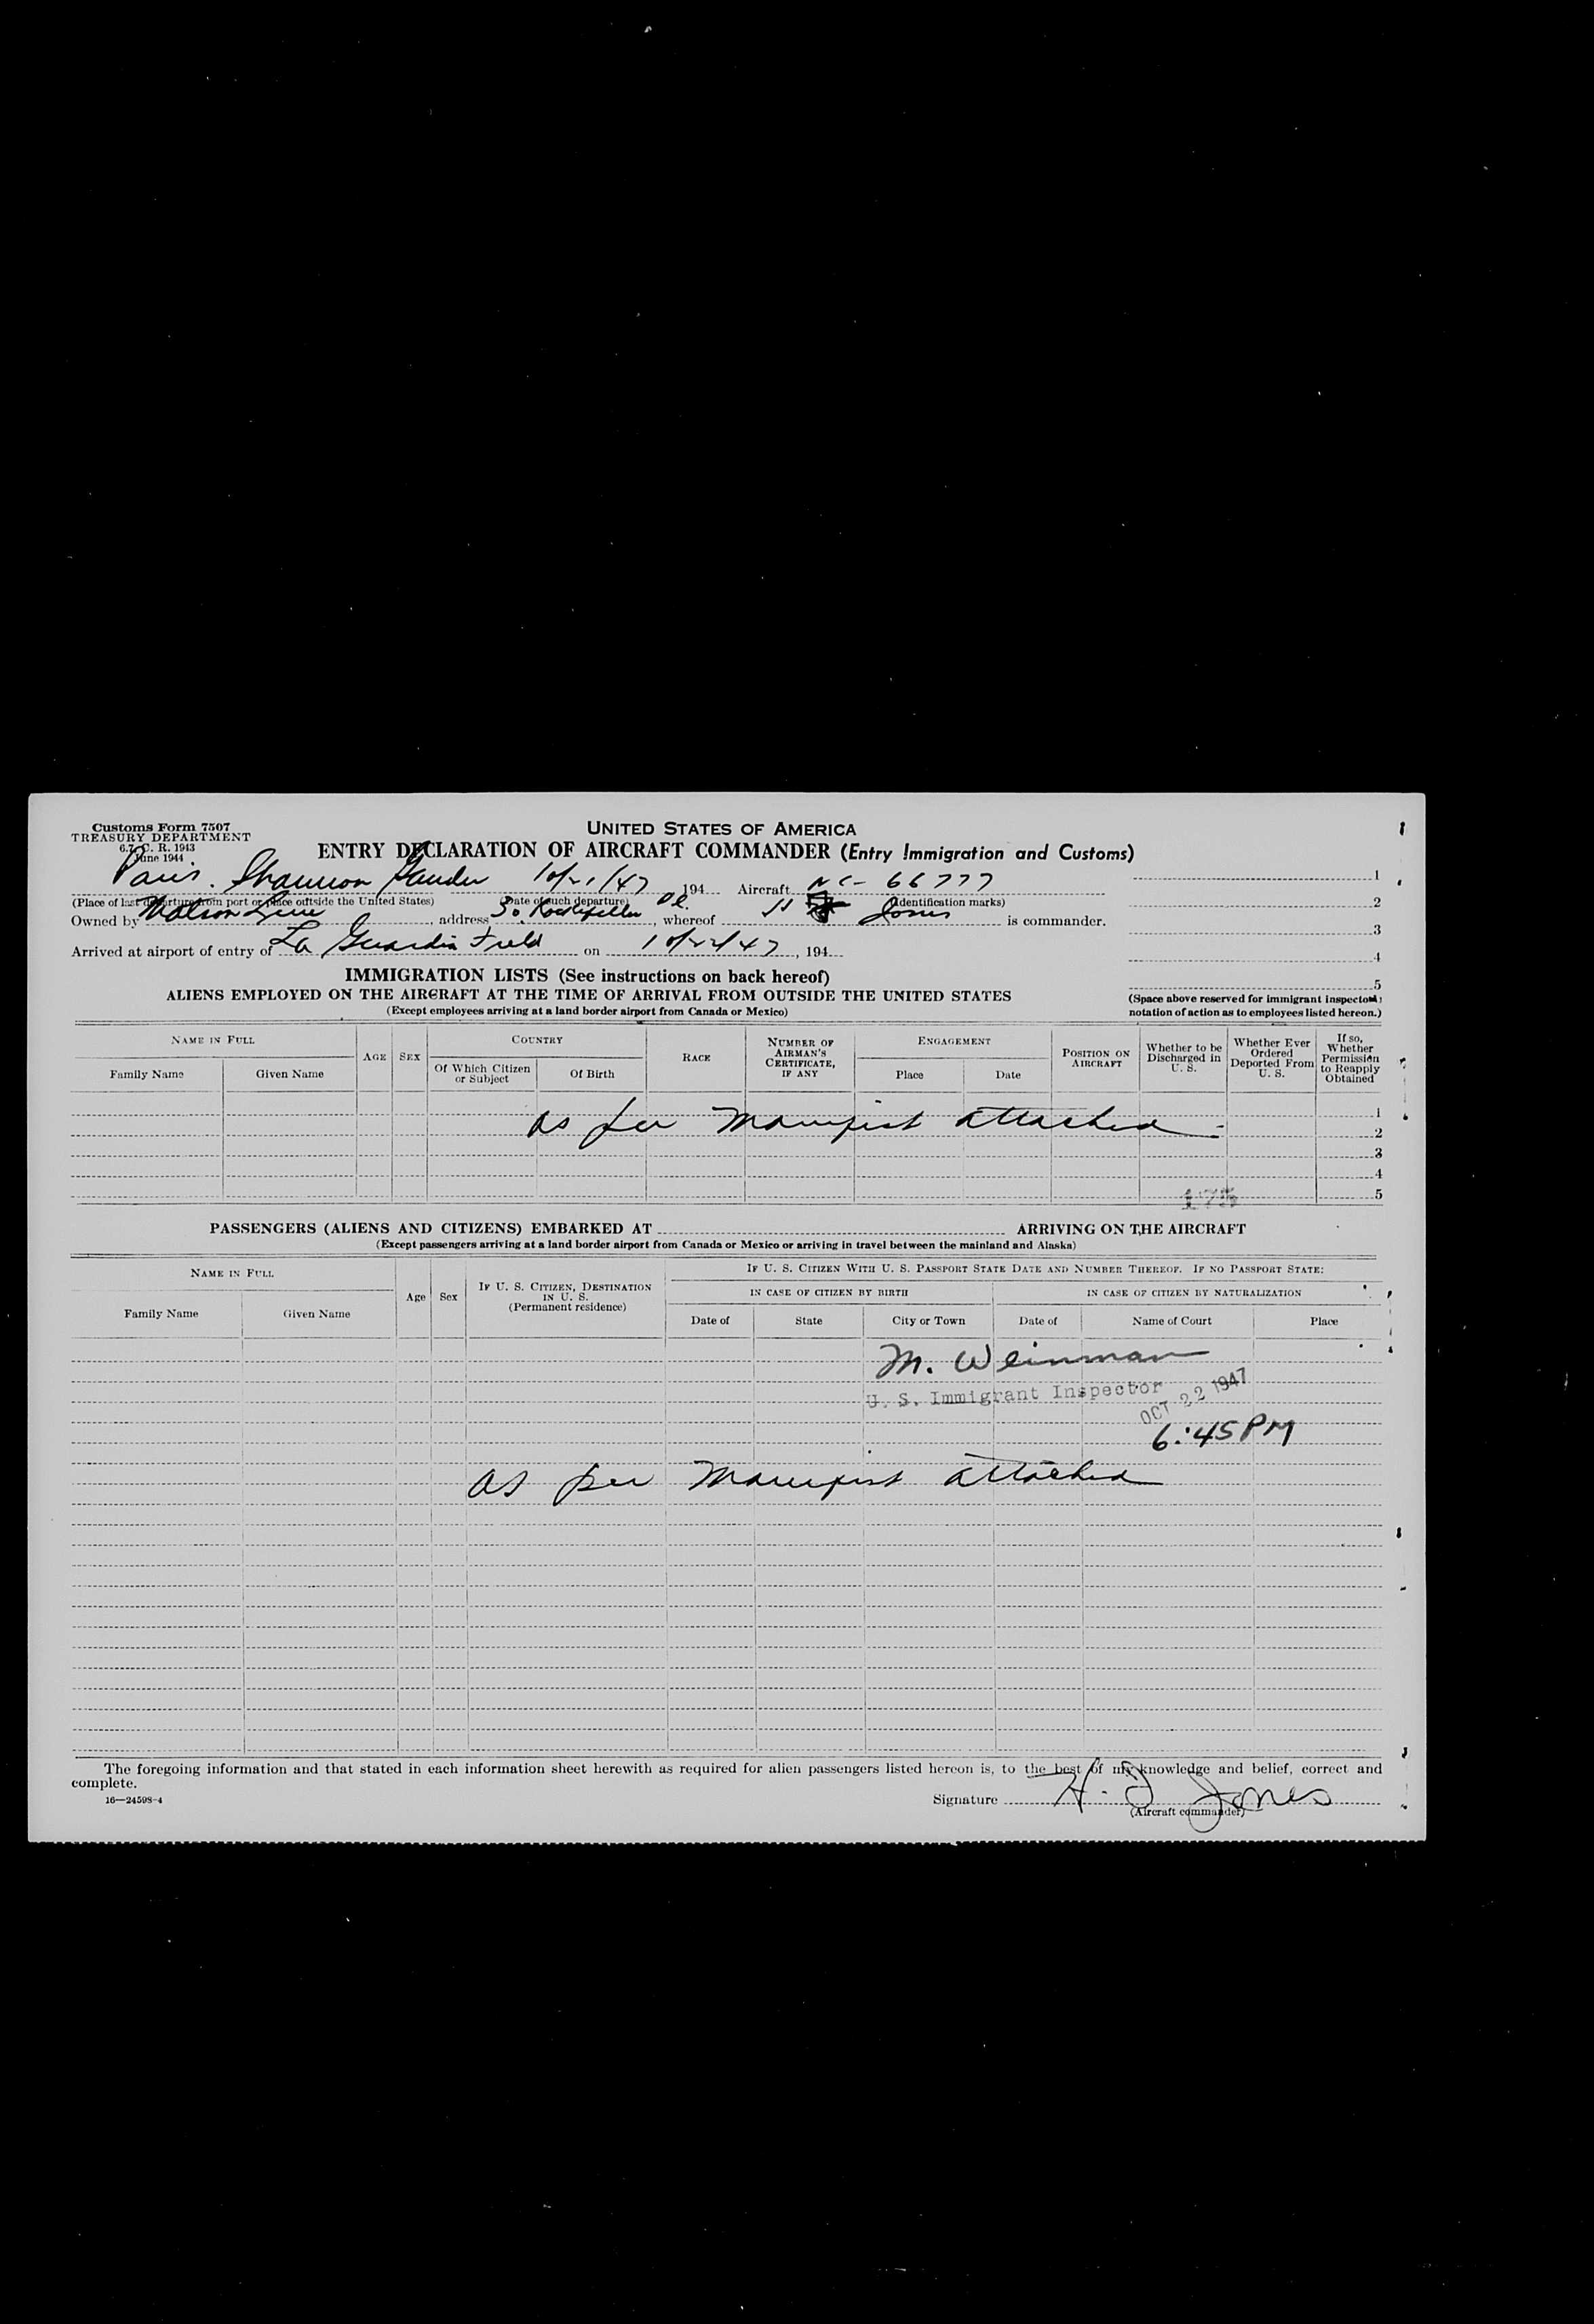 Customs Form 7507
TREASURY DEPARTMENT
6.7, C. R. 1943
June 1944
UNITED STATES OF AMERICA
ENTRY DECLARATION OF AIRCRAFT COMMANDER (Entry Immigration and Customs)
Paris. Shannon Gander 10/21/47, 194 Aircraft NC- 66777
(Place of last departure from port or place outside the United States) (Date of such departure) (Identification marks)
Owned by Line, address 30 Rockefeller Pl., whereof Jones is commander.
Arrived at airport of entry of La Guardia Field on 10/22/47, 194
1
2
3
4
5
(Space above reserved for immigrant inspector's notation of action as to employees listed hereon.)
IMMIGRATION LISTS (See instructions on back hereof)
ALIENS EMPLOYED ON THE AIRCRAFT AT THE TIME OF ARRIVAL FROM OUTSIDE THE UNITED STATES
(Except employees arriving at a land border airport from Canada or Mexico)
NAME IN FULL
Family Name Given Name
AGE SEX
COUNTRY
Of Which Citizen or Subject Of Birth
RACE
NUMBER OF AIRMAN'S CERTIFICATE, IF ANY
ENGAGEMENT
Place Date
POSITION ON AIRCRAFT
Whether to be Discharged in U. S.
Whether Ever Ordered Deported From U. S.
If so, Whether Permission to Reapply Obtained
as per Manifest attached
1
2
3
4
5
175
PASSENGERS (ALIENS AND CITIZENS) EMBARKED AT ARRIVING ON THE AIRCRAFT
(Except passengers arriving at a land border airport from Canada or Mexico or arriving in travel between the mainland and Alaska)
NAME IN FULL
Family Name Given Name
Age Sex
IF U. S. CITIZEN, DESTINATION IN U. S.
(Permanent residence)
IF U. S. CITIZEN WITH U. S. PASSPORT STATE DATE AND NUMBER THEREOF. IF NO PASSPORT STATE:
IN CASE OF CITIZEN BY BIRTH IN CASE OF CITIZEN BY NATURALIZATION
Date of State City or Town Date of Name of Court Place
M. Weinman
U. S. Immigrant Inspector
OCT 22 1947
6:45 PM
as per Manifest attached
The foregoing information and that stated in each information sheet herewith as required for alien passengers listed hereon is, to the best of my knowledge and belief, correct and
complete.
16—24598-4
Signature H. D Jones
(Aircraft commander)